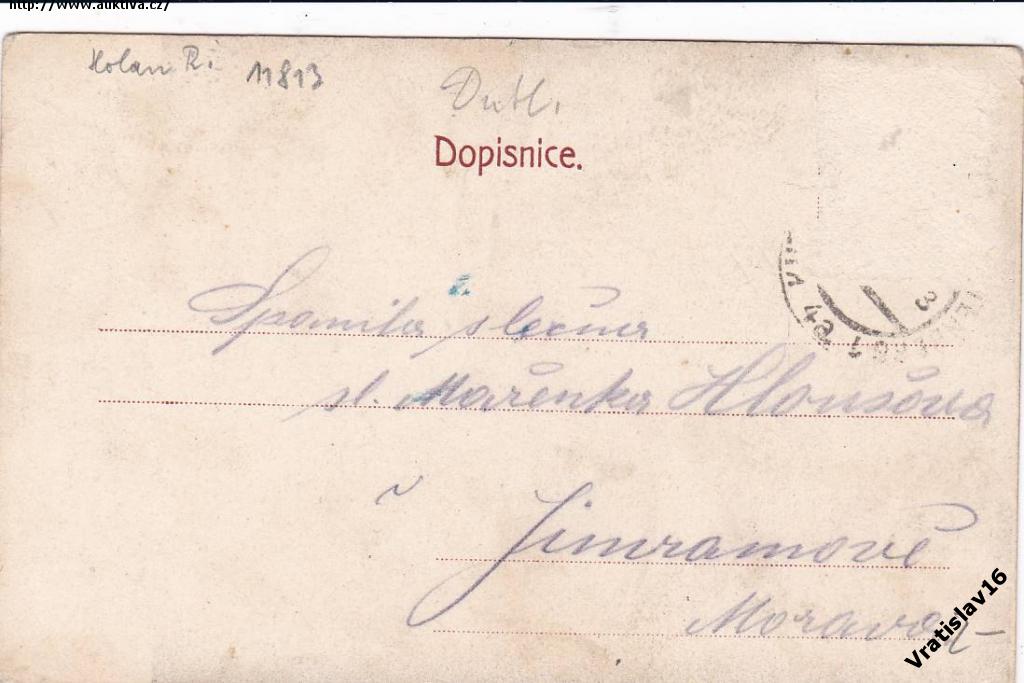 http://www.auktiva.cz/
Holan Ri 11813
Dopisnice.
slečna
sl. Mařenka Hlousšova
v
Jimramově
Morava
Vratislav16